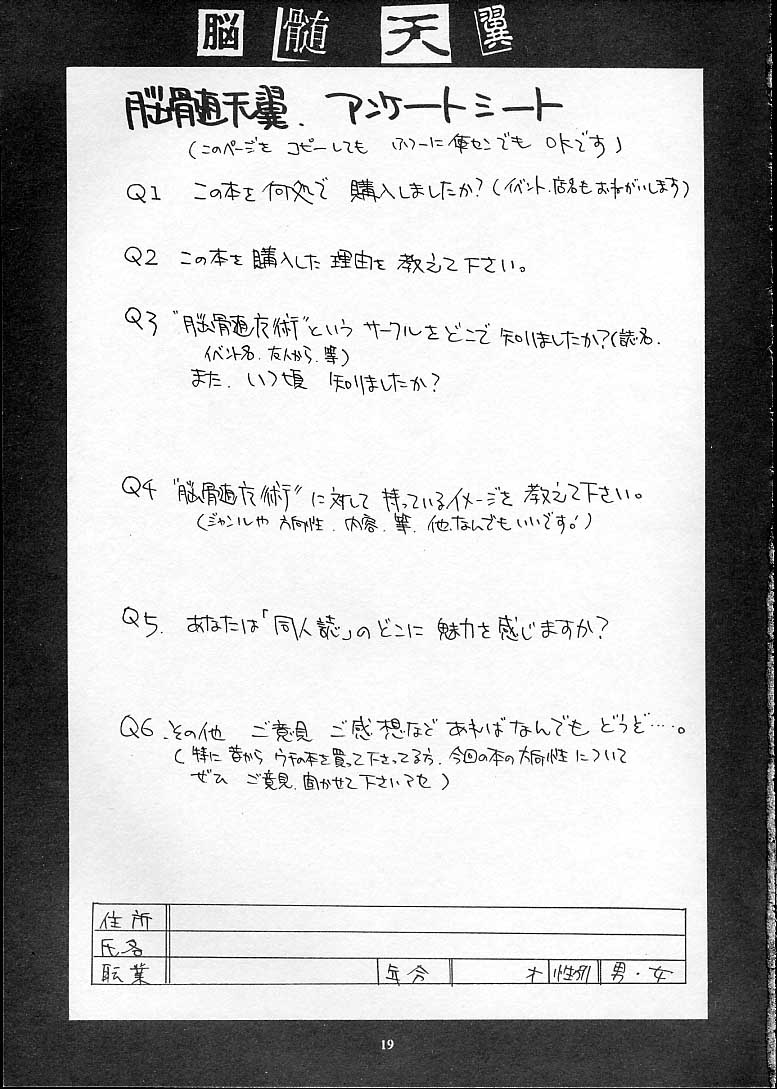 脳髄天翼
脳髄天翼. アンケートシート
(このページを コピーしても ふつーに便センでも OKです)
Q1 この本を何処で 購入しましたか?(イベント.店名もおねがいします)
Q2 この本を購入した理由を 教えて下さい。
Q3 "脳髄魔術"という サークルをどこで 知りましたか?(誌名.
イベント名. 友人から. 等)
また. いつ頃 知りましたか?
Q4 "脳髄魔術"に対して 持っているイメージを 教えて下さい。
(ジャンルや 方向性. 内容. 等. 他.なんでもいいです!)
Q5. あなたは「同人誌」のどこに 魅力を感じますか?
Q6.その他 ご意見 ご感想など あればなんでも どうぞ…。
(特に 昔から ウチの本を買って下さってる方. 今回の本の方向性について
ぜひ ご意見.聞かせて下さいませ)
住所
氏名
職業 年令 才 性別 男・女
19